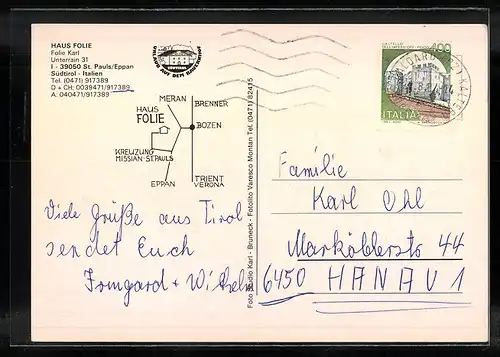 HAUS FOLIE
Folie Karl
Unterrain 31
I - 39050 St. Pauls/Eppan
Südtirol - Italien
Tel. (0471) 917389
D + CH: 0039471/917389
A: 040471/917389
URLAUB AUF DEM BAUERNHOF
MERAN
BRENNER
HAUS
FOLIE
BOZEN
KREUZUNG
MISSIAN-ST.PAULS
EPPAN
TRIENT
VERONA
Viele Grüße aus Tirol
sendet Euch
Irmgard + Wilhelm
Foto Studio Karl - Bruneck - Fotolito Varesco Montan Tel. (0471) 82415
400
ITALIA
Familie
Karl Ohl
Marköblerstr 44
6450 HANAU 1